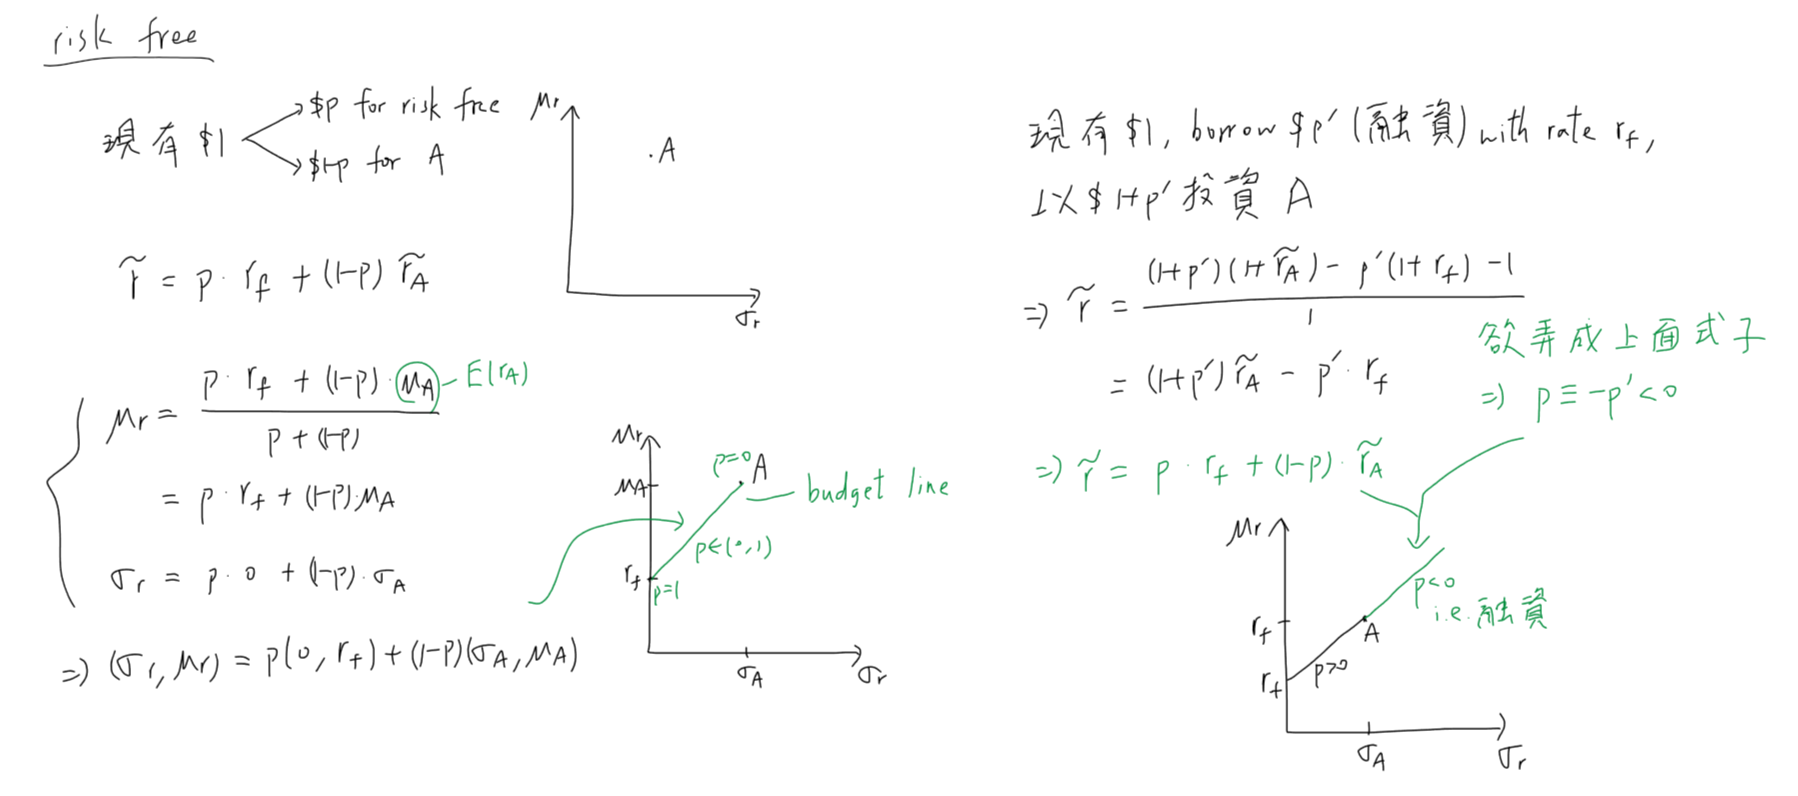 risk free
現有 $1
$p for risk free
$1-p for A
μr
.A
σr
r̃ = p · rf + (1-p) r̃A
μr = (p · rf + (1-p) · μA) / (p + (1-p))
E(rA)
= p · rf + (1-p) · μA
σr = p · 0 + (1-p) · σA
⇒ (σr, μr) = p(0, rf) + (1-p)(σA, μA)
μr
p=0 A
μA
budget line
p∈(0,1)
rf
p=1
σA
σr
現有 $1, borrow $p' (融資) with rate rf,
以 $1+p' 投資 A
⇒ r̃ = ((1+p')(1+r̃A) - p'(1+rf) - 1) / 1
= (1+p') r̃A - p' · rf
欲弄成上面式子
⇒ p ≡ -p' < 0
⇒ r̃ = p · rf + (1-p) · r̃A
μr
p<0
i.e. 融資
rf
A
p>0
rf
σA
σr